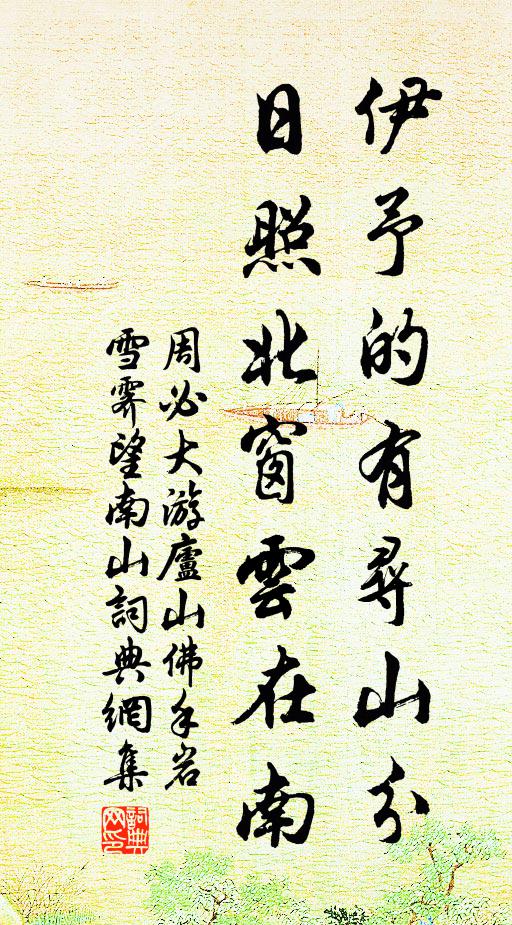 伊予的有尋山分
日照北窗雲在南
周必大游廬山佛手岩
雪霽望南山詞典網集
詞典網印